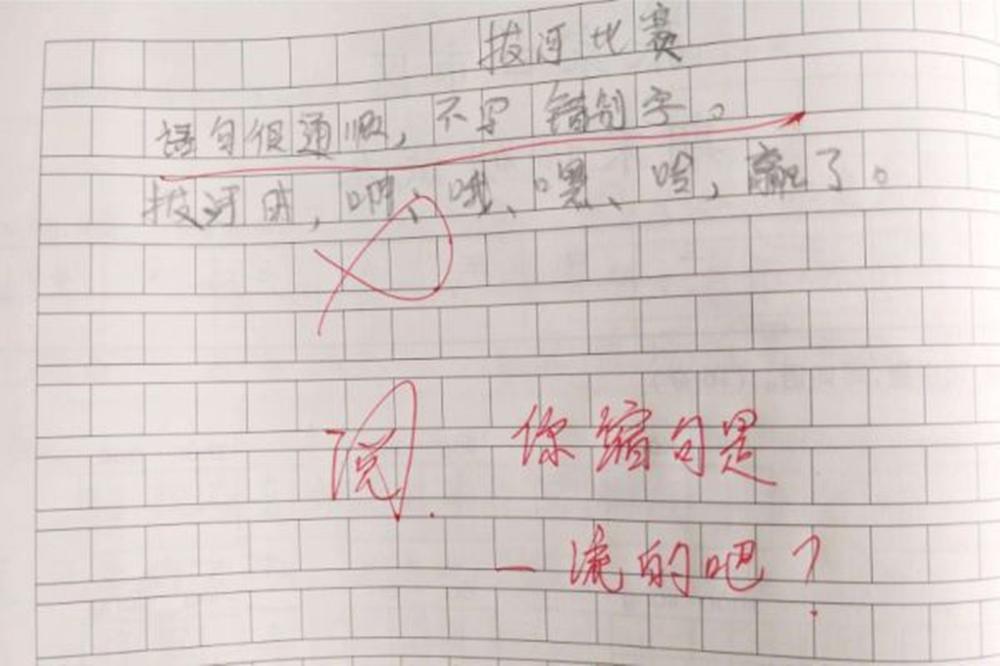 拔河比赛
语句很通顺，不写错别字。
拔河时，啊、哦、嘿、哈，赢了。
阅.
你缩句是
一流的吧？